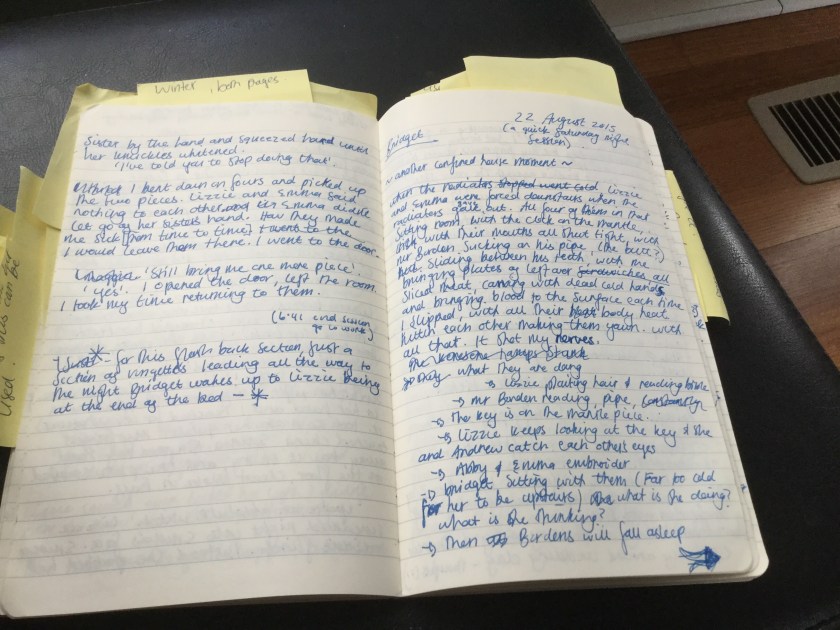 Winter, both pages
Sister by the hand and squeezed hand until
her knuckles whitened.
'I've told you to stop doing that'.
I bent down on fours and picked up
the five pieces. Lizzie and Emma said
nothing to each other and Emma didn't
let go of her sister's hand. How they made
me sick [from time to time] I went to the
I would leave them there. I went to the door.
'Maggie. 'Still bring me one more piece'.
'Yes'. I opened the door, left the room.
I took my time returning to them.
(6.41 cold session
go to work)
* - for this flash back section, just a
section of vingettes leading all the way to
the night Bridget wakes up to Lizzie being
at the end of the bed - *
22 August 2015
(a quick Saturday night
session)
Bridget
~ another confined house moment ~
when the radiators stopped went cold Lizzie
and Emma were forced downstairs when the
radiators gave out. All four of them in that
sitting room with the clock on the mantle,
with their mouths all shut tight, with
Mr Borden sucking on his pipe (the butt?)
sliding between his teeth, with me
bringing plates of left over sandwiches all
sliced meat, carving with dead cold hands
and bringing blood to the surface each time
I slipped, with all their body heat
hitting each other making them yawn. With
all that. It shot my nerves.
what they are doing
→ Lizzie plaiting hair & reading bible
→ Mr Borden reading, pipe,
→ The key is on the mantle piece.
→ Lizzie keeps looking at the key & she
and Andrew catch each other's eyes
→ Abby & Emma embroider
→ Bridget sitting with them (far to cold
for her to be upstairs) what is she doing?
what is she thinking?
→ Then Bordens will fall asleep